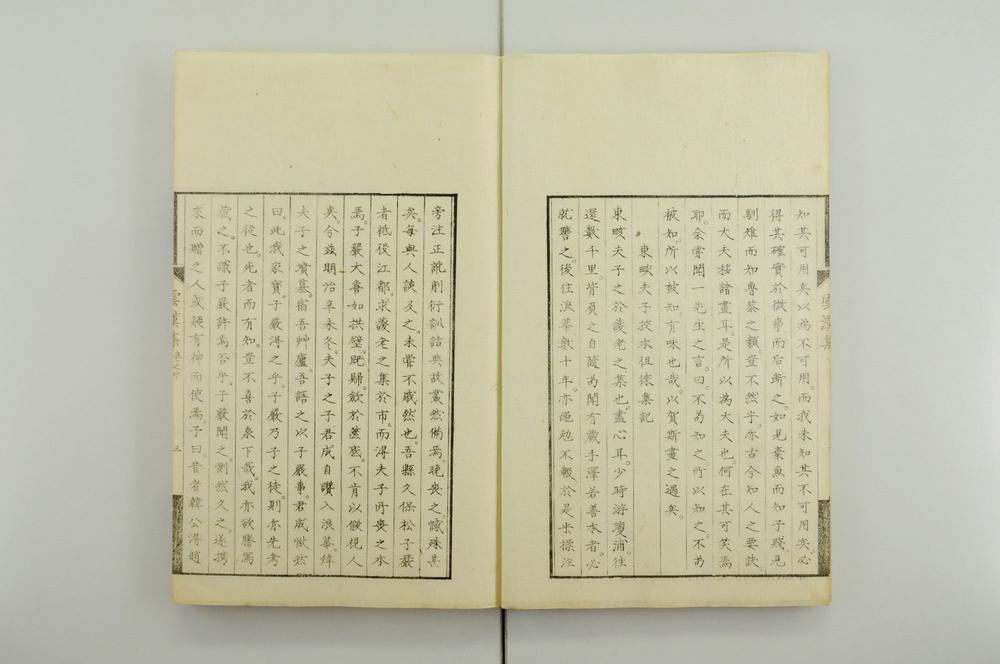 知其可用矣以為不可用而我未知其不可用矣必
得其確實於微學而后斷之如見棄魚而知子賤見
馴雉而知魯恭之類豈不然乎亦古今知人之要訣
而大夫技諸畫耳是所以為大夫也何在其可笑焉
耶余嘗聞一先生之言曰不為知之所以知之不為
被知所以被知有味也哉以賀斯畫之遇矣
東畡夫子挍本徂徠集記
東畡夫子之於蘐老之集也盡心耳少時游瓊浦往
還數千里背負之自隨為聞有藏手澤若善本者必
就讐之後住浪華數十年亦黽勉不輟於是乎標注
旁注正訛削衍訓詁典故叢然備焉晚喪之憾殊甚
矣每與人談及之未嘗不戚然也吾縣久保松子嚴
者祗役江都求蘐老之集於市而得夫子所喪之本
焉子嚴大喜如拱璧既歸歛於篋底不肯以假視人
矣今茲明治辛未冬夫子之子君成自讚入浪華拜
夫子之墳墓宿吾艸廬吾語之以子嚴事君成愀然
曰此我家寶子嚴得之乎子嚴乃子之徒則亦先考
之徒也死者而有知豈不喜於泉下哉我亦欲謄寫
藏之不識子嚴許焉否乎子嚴聞之惻然久之遂携
來而贈之人或疑有神而使焉予曰昔者韓公得趙
雲漢集
三